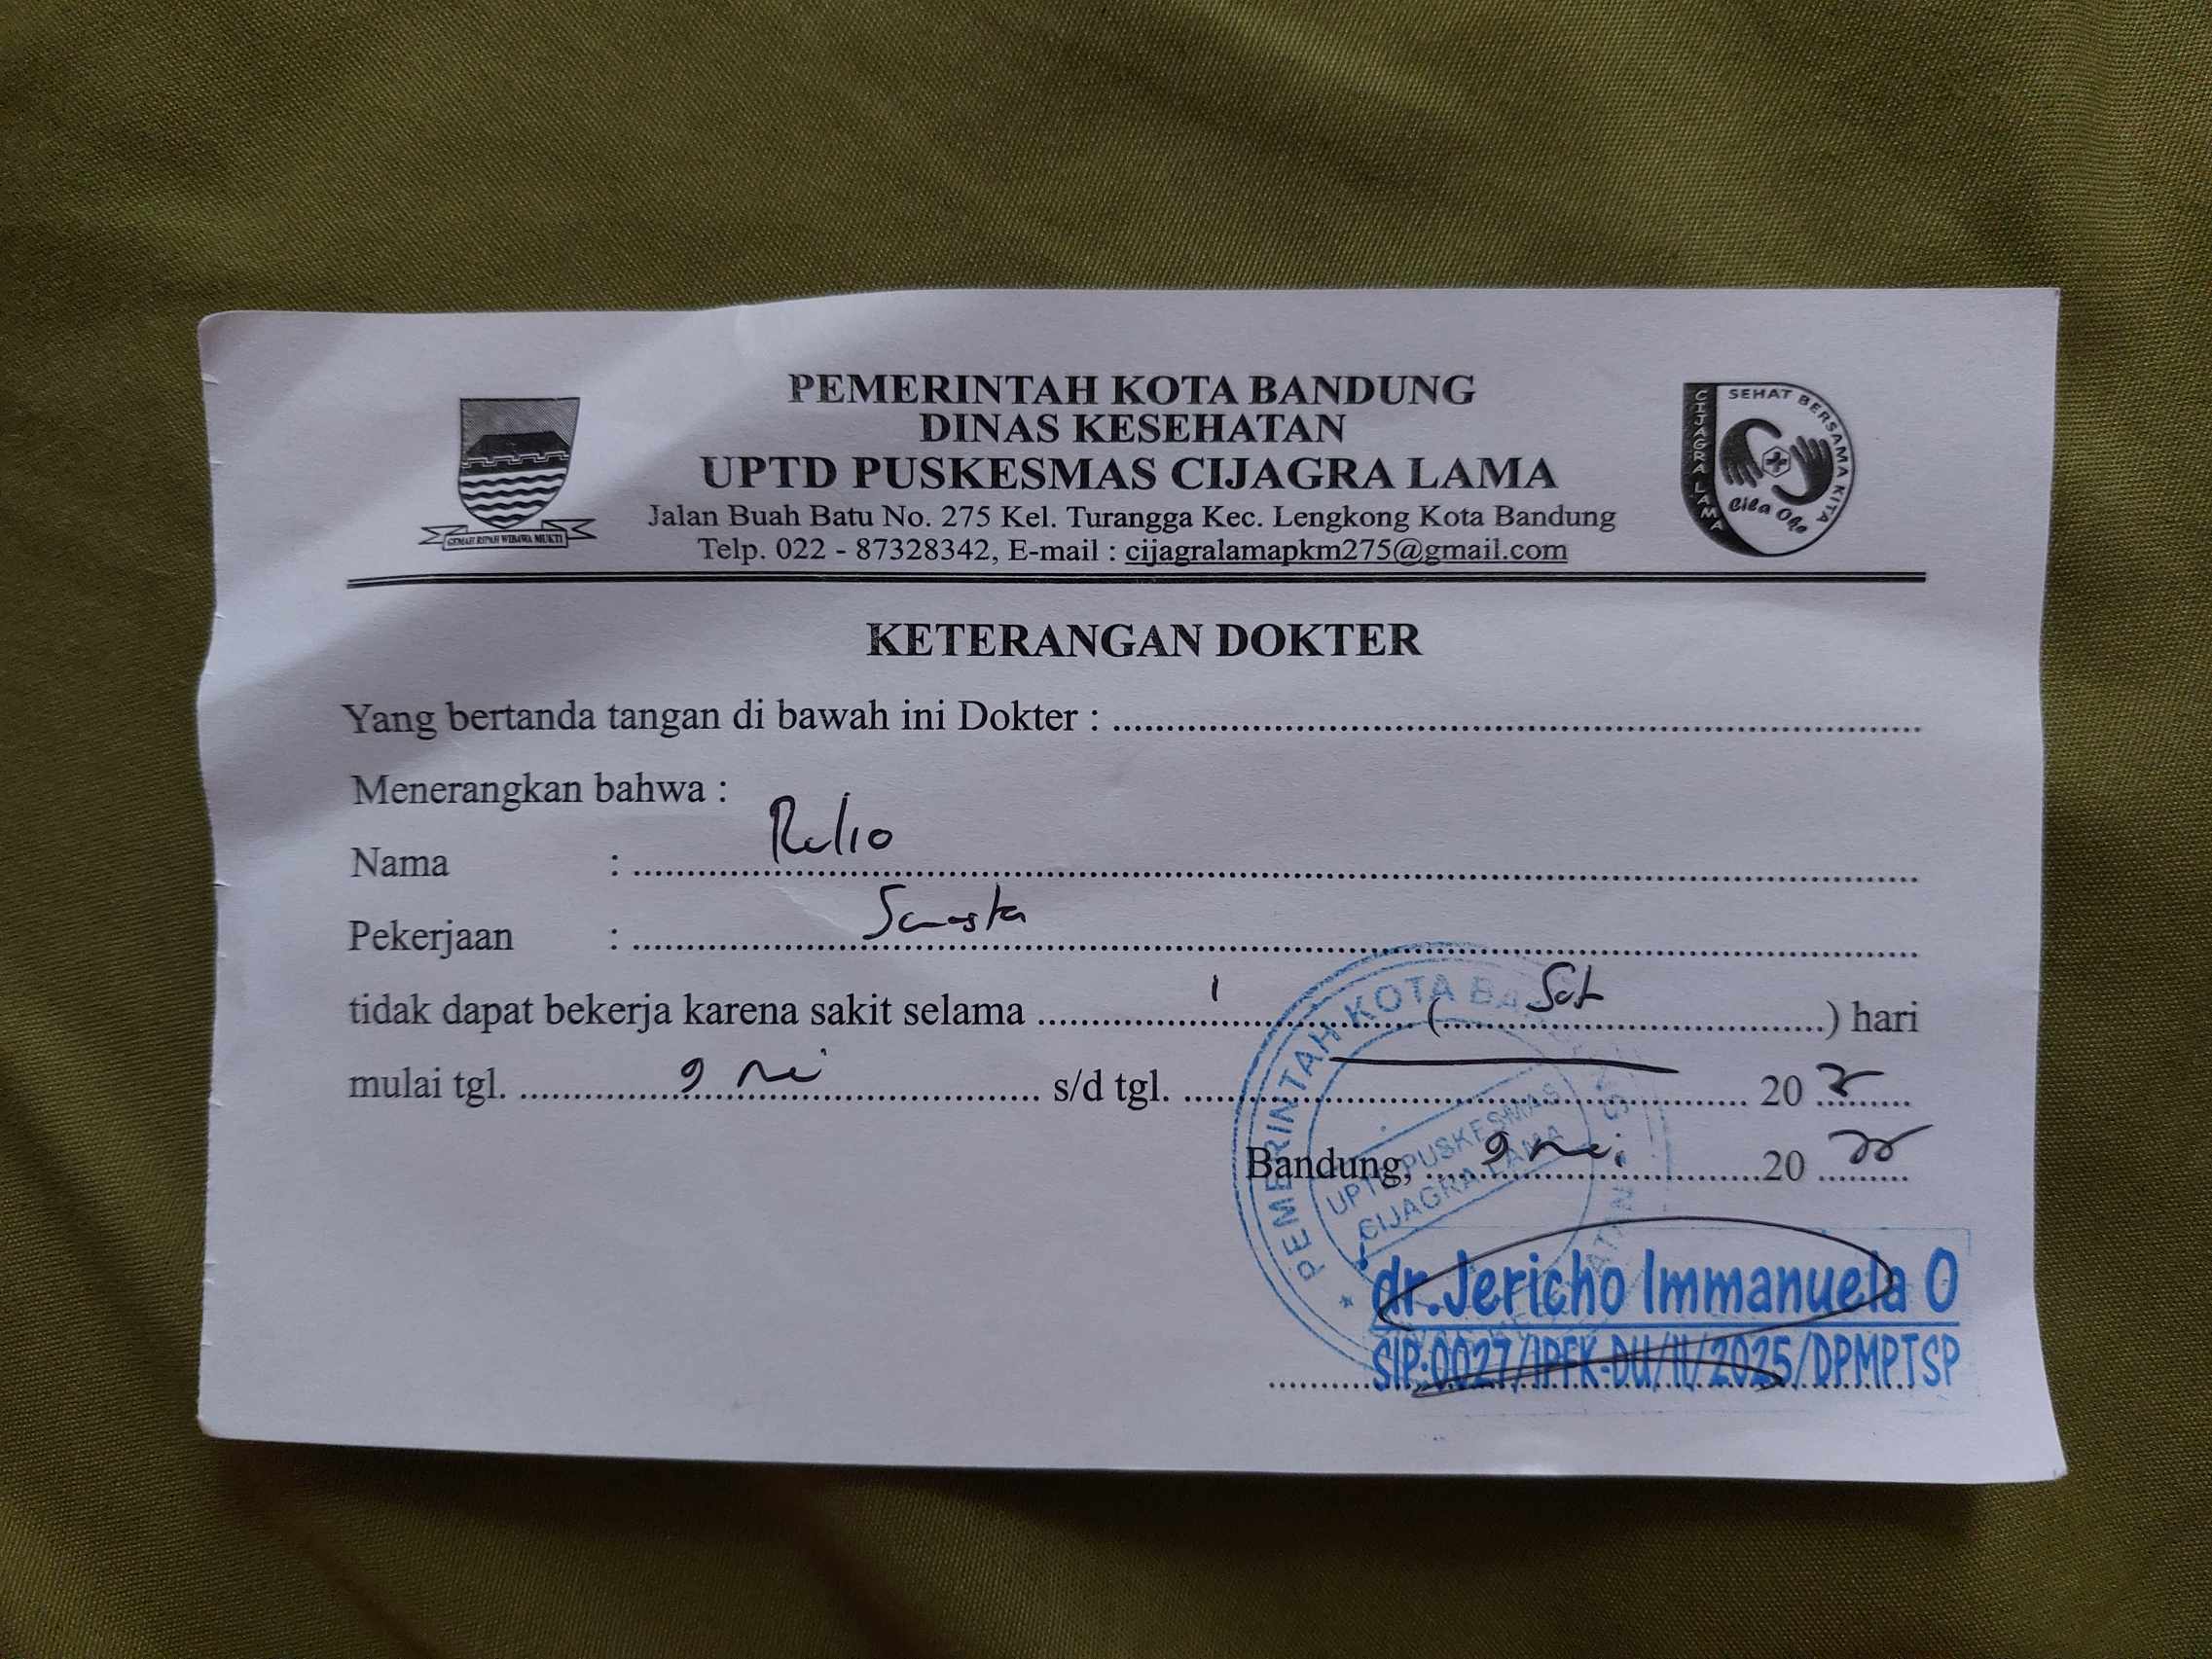 PEMERINTAH KOTA BANDUNG
DINAS KESEHATAN
UPTD PUSKESMAS CIJAGRA LAMA
Jalan Buah Batu No. 275 Kel. Turangga Kec. Lengkong Kota Bandung
Telp. 022 - 87328342, E-mail : cijagralamapkm275@gmail.com
GEMAH RIPAH WIBAWA MUKTI
CIJAGRA LAMA
SEHAT BERSAMA KITA
KETERANGAN DOKTER
Yang bertanda tangan di bawah ini Dokter :
Menerangkan bahwa :
Nama :
Pekerjaan :
tidak dapat bekerja karena sakit selama 1 ( ) hari
mulai tgl. 9 s/d tgl. 20
Bandung, 9 20
PEMERINTAH KOTA
UPTD PUSKESMAS
CIJAGRA LAMA
dr.Jericho Immanuela O
SIP:0027/IPFK-DU/II/2025/DPMPTSP